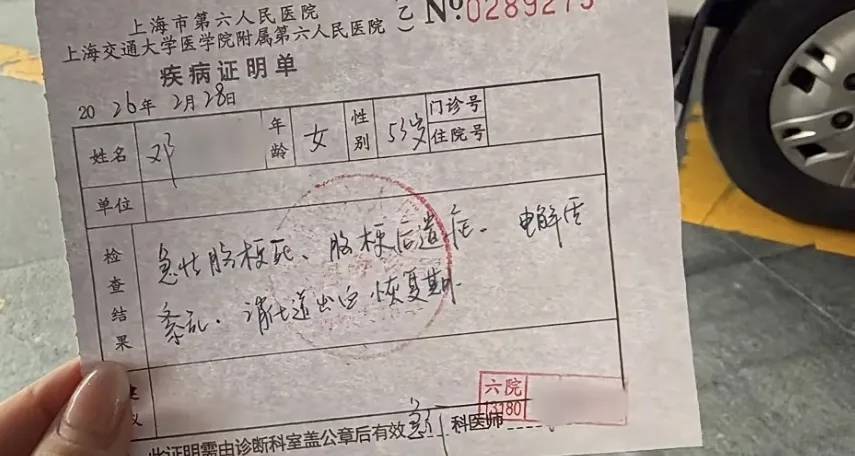 上海市第六人民医院
上海交通大学医学院附属第六人民医院
(乙) No.0289275
疾病证明单
2026年2月28日
姓名 邓 年龄 女 性别 53岁 门诊号
住院号
单位
检查结果 急性脑梗死、脑梗后遗症、电解质
紊乱、消化道出血恢复期
建议
六院
3180
此证明需由诊断科室盖公章后有效 科医师